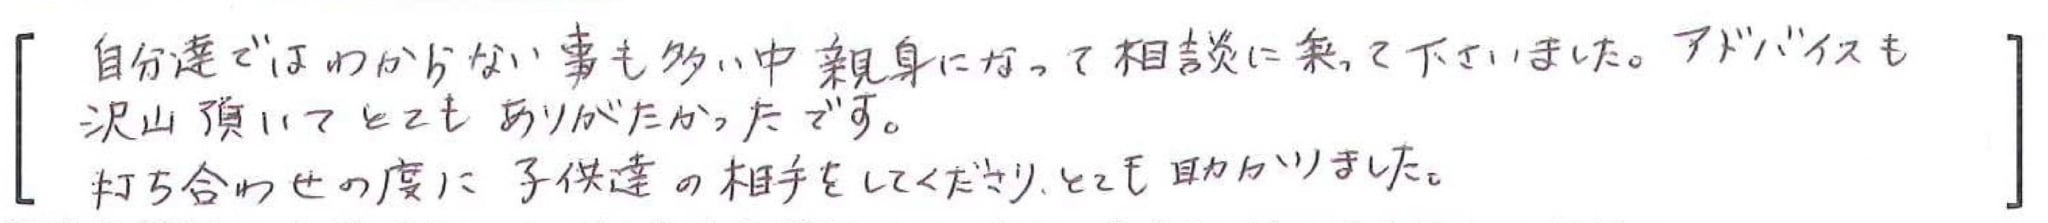 自分達ではわからない事も多い中親身になって相談に乗って下さいました。アドバイスも
沢山頂いてとてもありがたかったです。
打ち合わせの度に子供達の相手をしてくださり、とても助かりました。